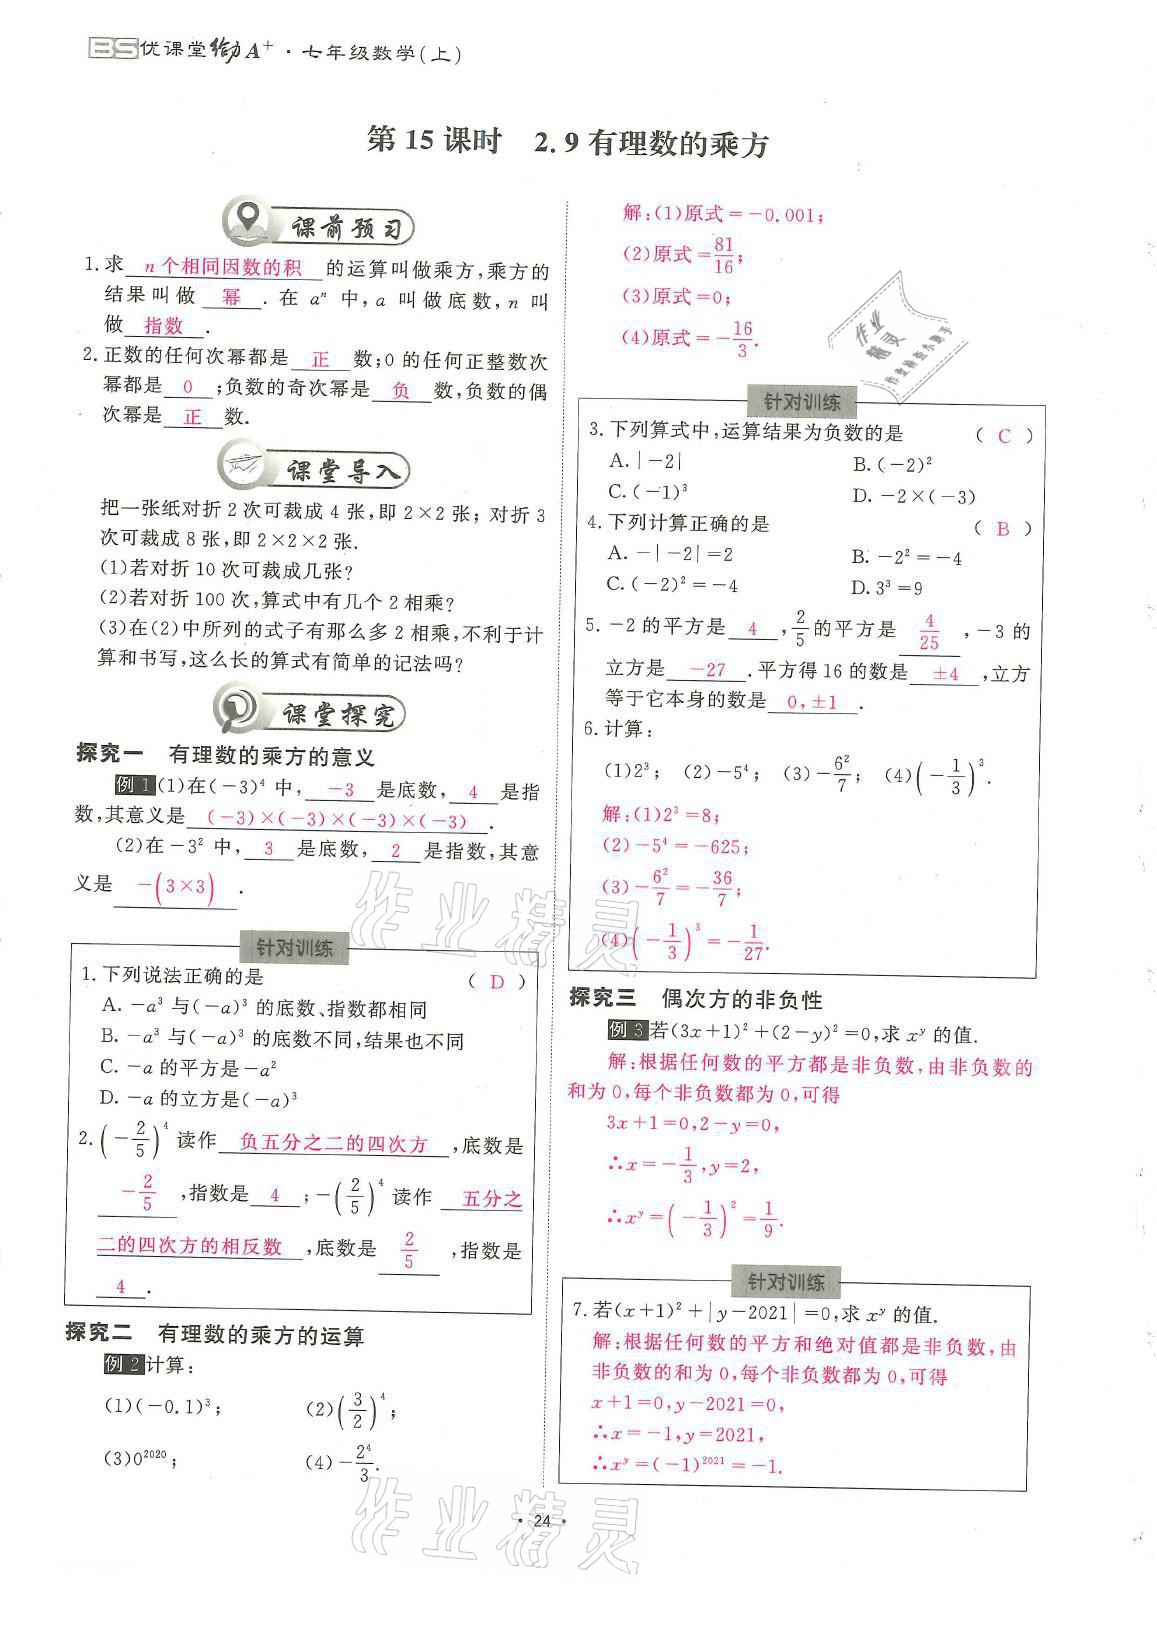 BS优课堂给力A⁺·七年级数学(上)
第15课时 2.9有理数的乘方
课前预习
1.求 n个相同因数的积 的运算叫做乘方,乘方的
结果叫做 幂 .在 aⁿ 中,a 叫做底数,n 叫
做 指数 .
2.正数的任何次幂都是 正 数;0的任何正整数次
幂都是 0 ;负数的奇次幂是 负 数,负数的偶
次幂是 正 数.
课堂导入
把一张纸对折2次可裁成4张,即2×2张;对折3
次可裁成8张,即2×2×2张.
(1)若对折10次可裁成几张?
(2)若对折100次,算式中有几个2相乘?
(3)在(2)中所列的式子有那么多2相乘,不利于计
算和书写,这么长的算式有简单的记法吗?
课堂探究
探究一 有理数的乘方的意义
例1 (1)在(-3)⁴中, -3 是底数, 4 是指
数,其意义是 (-3)×(-3)×(-3)×(-3) .
(2)在-3²中, 3 是底数, 2 是指数,其意
义是 -(3×3) .
针对训练
1.下列说法正确的是 ( D )
A.-a³与(-a)³的底数、指数都相同
B.-a³与(-a)³的底数不同,结果也不同
C.-a的平方是-a²
D.-a的立方是(-a)³
2.(-2/5)⁴读作 负五分之二的四次方 ,底数是
-2/5 ,指数是 4 ;-(2/5)⁴读作 五分之
二的四次方的相反数 ,底数是 2/5 ,指数是
4 .
探究二 有理数的乘方的运算
例2 计算:
(1)(-0.1)³; (2)(3/2)⁴;
(3)0²⁰²⁰; (4)-2⁴/3.
解:(1)原式=-0.001;
(2)原式=81/16;
(3)原式=0;
(4)原式=-16/3.
作业
精灵
作业检查小助手
针对训练
3.下列算式中,运算结果为负数的是 ( C )
A.|-2| B.(-2)²
C.(-1)³ D.-2×(-3)
4.下列计算正确的是 ( B )
A.-|-2|=2 B.-2²=-4
C.(-2)²=-4 D.3³=9
5.-2的平方是 4 ,2/5的平方是 4/25 ,-3的
立方是 -27 .平方得16的数是 ±4 ,立方
等于它本身的数是 0,±1 .
6.计算:
(1)2³; (2)-5⁴; (3)-6²/7; (4)(-1/3)³.
解:(1)2³=8;
(2)-5⁴=-625;
(3)-6²/7=-36/7;
(4)(-1/3)³=-1/27.
探究三 偶次方的非负性
例3 若(3x+1)²+(2-y)²=0,求xʸ的值.
解:根据任何数的平方都是非负数,由非负数的
和为0,每个非负数都为0,可得
3x+1=0,2-y=0,
∴x=-1/3,y=2,
∴xʸ=(-1/3)²=1/9.
针对训练
7.若(x+1)²+|y-2021|=0,求xʸ的值.
解:根据任何数的平方和绝对值都是非负数,由
非负数的和为0,每个非负数都为0,可得
x+1=0,y-2021=0,
∴x=-1,y=2021,
∴xʸ=(-1)²⁰²¹=-1.
作业精灵
作业精灵
·24·